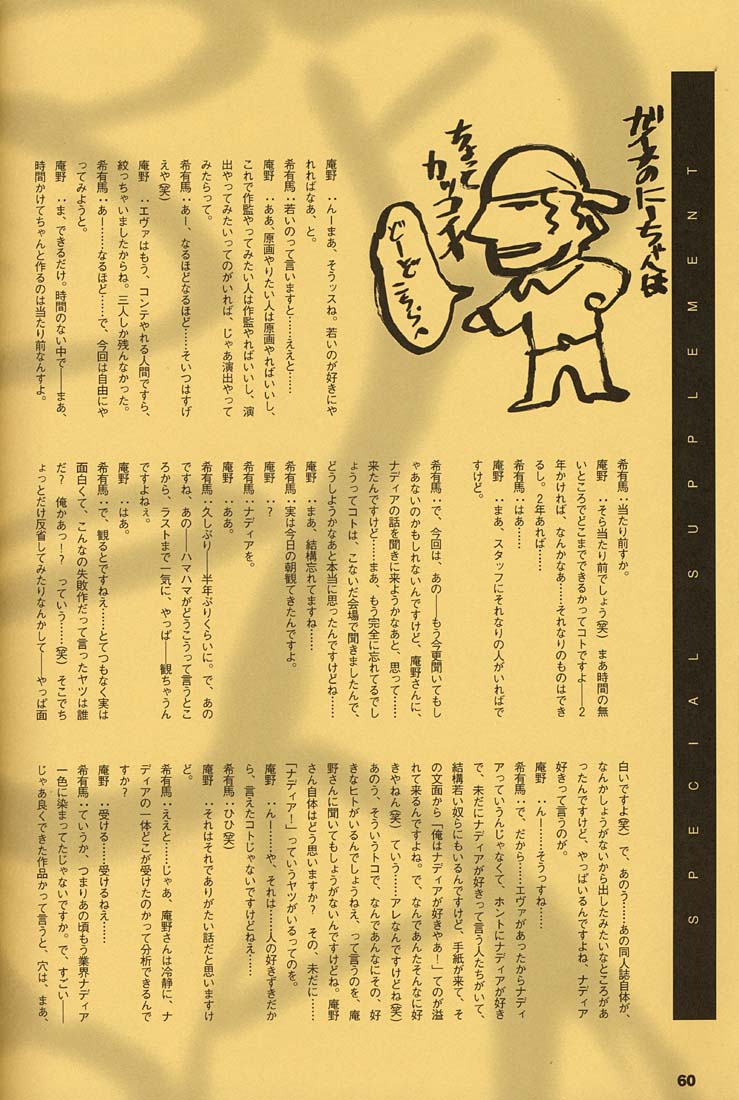 SPECIAL SUPPLEMENT
ガイナのにーちゃんは
ちょって
カッコイイ
どーどこそら、へ
庵野　：んーまあ、そうッスね。若いのが好きにや
れればなあ、と。
希有馬：若いのって言いますと……ええと……
庵野　：ああ、原画やりたい人は原画やればいいし、
これで作監やってみたい人は作監やればいいし、演
出やってみたいってのがいれば、じゃあ演出やって
みたらって。
希有馬：あー、なるほどなるほど……そいつはすげ
えや(笑)
庵野　：エヴァはもう、コンテやれる人間ですら、
絞っちゃいましたからね。三人しか残んなかった。
希有馬：あー……なるほど……で、今回は自由にや
ってみようと。
庵野　：ま、できるだけ。時間のない中で——まあ、
時間かけてちゃんと作るのは当たり前なんすよ。
希有馬：当たり前すか。
庵野　：そら当たり前でしょう(笑)　まあ時間の無
いところでどこまでできるかってコトですよ——2
年かければ、なんかなあ……それなりのものはでき
るし。2年あれば……
希有馬：はあ……
庵野　：まあ、スタッフにそれなりの人がいればで
すけど。
希有馬：で、今回は、あの——もう今更聞いてもし
ゃあないのかもしれないんですけど、庵野さんに、
ナディアの話を聞きに来ようかなあと、思って……
来たんですけど……まあ、もう完全に忘れてるでし
ょうってコトは、こないだ会場で聞きましたんで、
どうしようかなあと本当に思ったんですけどね……
庵野　：まあ、結構忘れてますね……
希有馬：実は今日の朝観てきたんですよ。
庵野　：？
希有馬：ナディアを。
庵野　：ああ。
希有馬：久しぶり——半年ぶりくらいに。で、あの
ですね、あの——ハマハマがどうこうって言うとこ
ろから、ラストまで一気に、やっぱ——観ちゃうん
ですよねぇ。
庵野　：はあ。
希有馬：で、観るとですねえ……とてつもなく実は
面白くて、こんなの失敗作だって言ったヤツは誰
だ？　俺かあっ！？　っていう……(笑)　そこでち
ょっとだけ反省してみたりなんかして——やっぱ面
白いですよ(笑)　で、あのう……あの同人誌自体が、
なんかしょうがないから出したみたいなところがあ
ったんですけど、やっぱいるんですよね、ナディア
好きって言うのが。
庵野　：んー……そうっすね……
希有馬：で、だから……エヴァがあったからナディ
アっていうんじゃなくて、ホントにナディアが好き
で、未だにナディアが好きって言う人たちがいて、
結構若い奴らにもいるんですけど、手紙が来て、そ
の文面から「俺はナディアが好きやあ！」てのが溢
れて来るんですよね。で、なんであんたそんなに好
きやねん(笑)　ていう……アレなんですけどね(笑)
あのう、そういうトコで、なんであんなにその、好
きなヒトがいるんでしょうねえ、って言うのを、庵
野さんに聞いてもしょうがないんですけどね。庵野
さん自体はどう思いますか？　その、未だに……
「ナディア！」っていうヤツがいるってのを。
庵野　：んー……や、それは……人の好きずきだか
ら、言えたコトじゃないですけどねえ……
希有馬：ひひ(笑)
庵野　：それはそれでありがたい話だと思いますけ
ど。
希有馬：ええと……じゃあ、庵野さんは冷静に、ナ
ディアの一体どこが受けたのかって分析できるんで
すか？
庵野　：受ける……受けるねえ……
希有馬：ていうか、つまりあの頃もう業界ナディア
一色に染まってたじゃないですか。で、すごい——
じゃあ良くできた作品かって言うと、穴は、まあ、
60